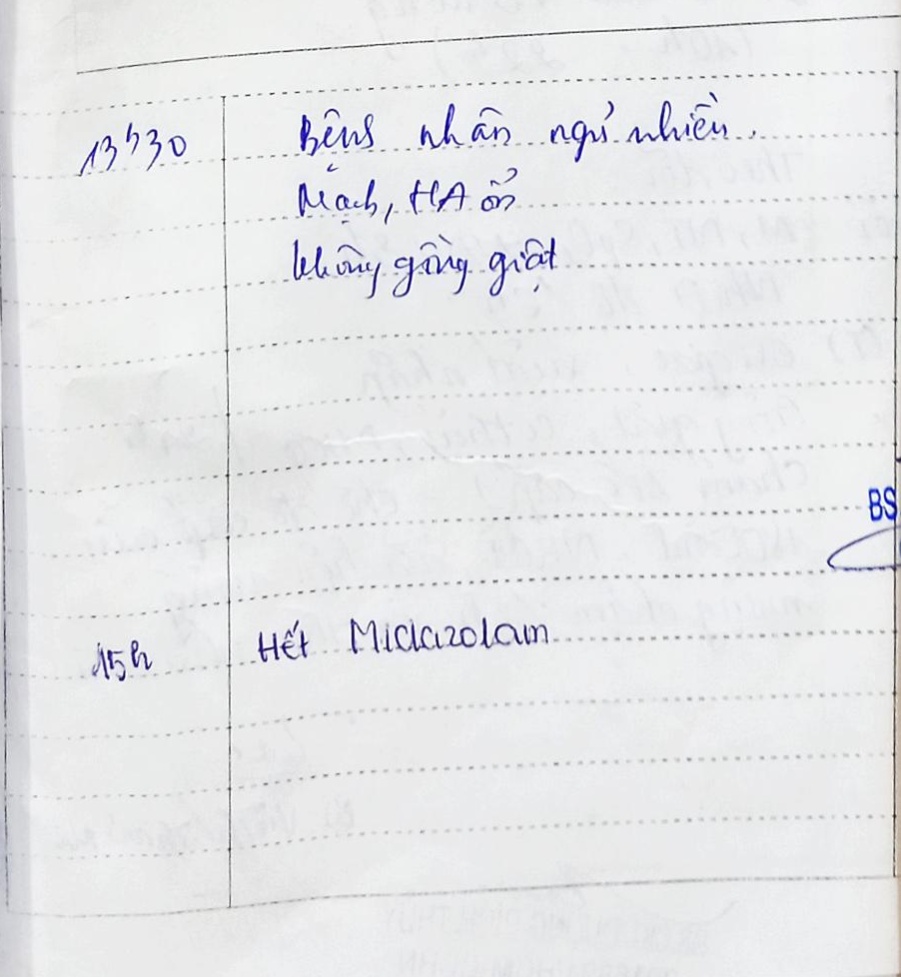 13h30 Bệnh nhân ngủ nhiều.
Mạch, HA ổn
không gồng giật
BS
15h Hết Midazolam